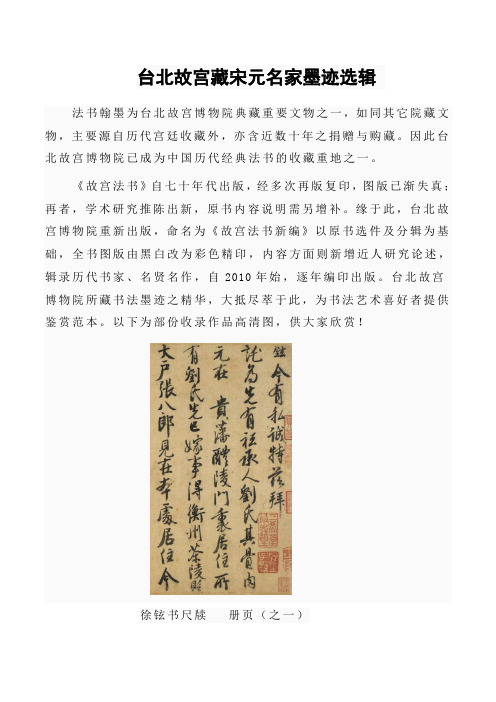 台北故宫藏宋元名家墨迹选辑
法书翰墨为台北故宫博物院典藏重要文物之一，如同其它院藏文
物，主要源自历代宫廷收藏外，亦含近数十年之捐赠与购藏。因此台
北故宫博物院已成为中国历代经典法书的收藏重地之一。
《故宫法书》自七十年代出版，经多次再版复印，图版已渐失真；
再者，学术研究推陈出新，原书内容说明需另增补。缘于此，台北故
宫博物院重新出版，命名为《故宫法书新编》以原书选件及分辑为基
础，全书图版由黑白改为彩色精印，内容方面则新增近人研究论述，
辑录历代书家、名贤名作，自2010年始，逐年编印出版。台北故宫
博物院所藏书法墨迹之精华，大抵尽萃于此，为书法艺术喜好者提供
鉴赏范本。以下为部份收录作品高清图，供大家欣赏！
鉉今有私誠特茲拜
託為先有祗承人劉氏其骨肉
元在貴藩醴陵門裏居住所
有劉氏先已嫁事得衡州茶陵縣
大戶張八郎見在本處居住今
徐铉书尺牍 册页（之一）